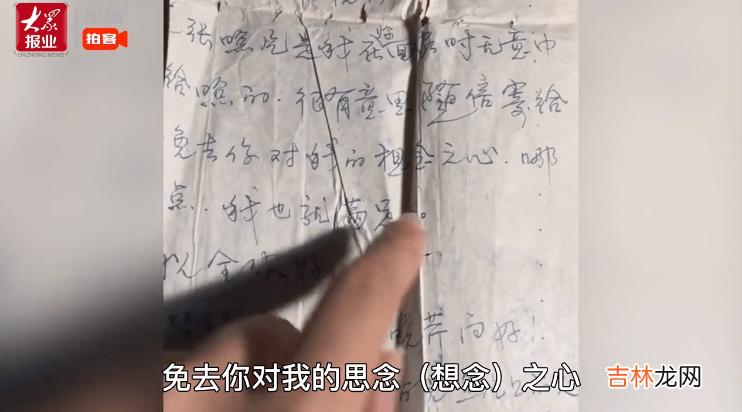 大众报业
DAZHONG NEWS
拍客
一张照片是我在 时无意中
给照的.很有意思 随信寄给
免去你对我的想念之心.哪
点.我也就满足。
祝全家好
晓芹问好!
免去你对我的思念（想念）之心
吉林龙网